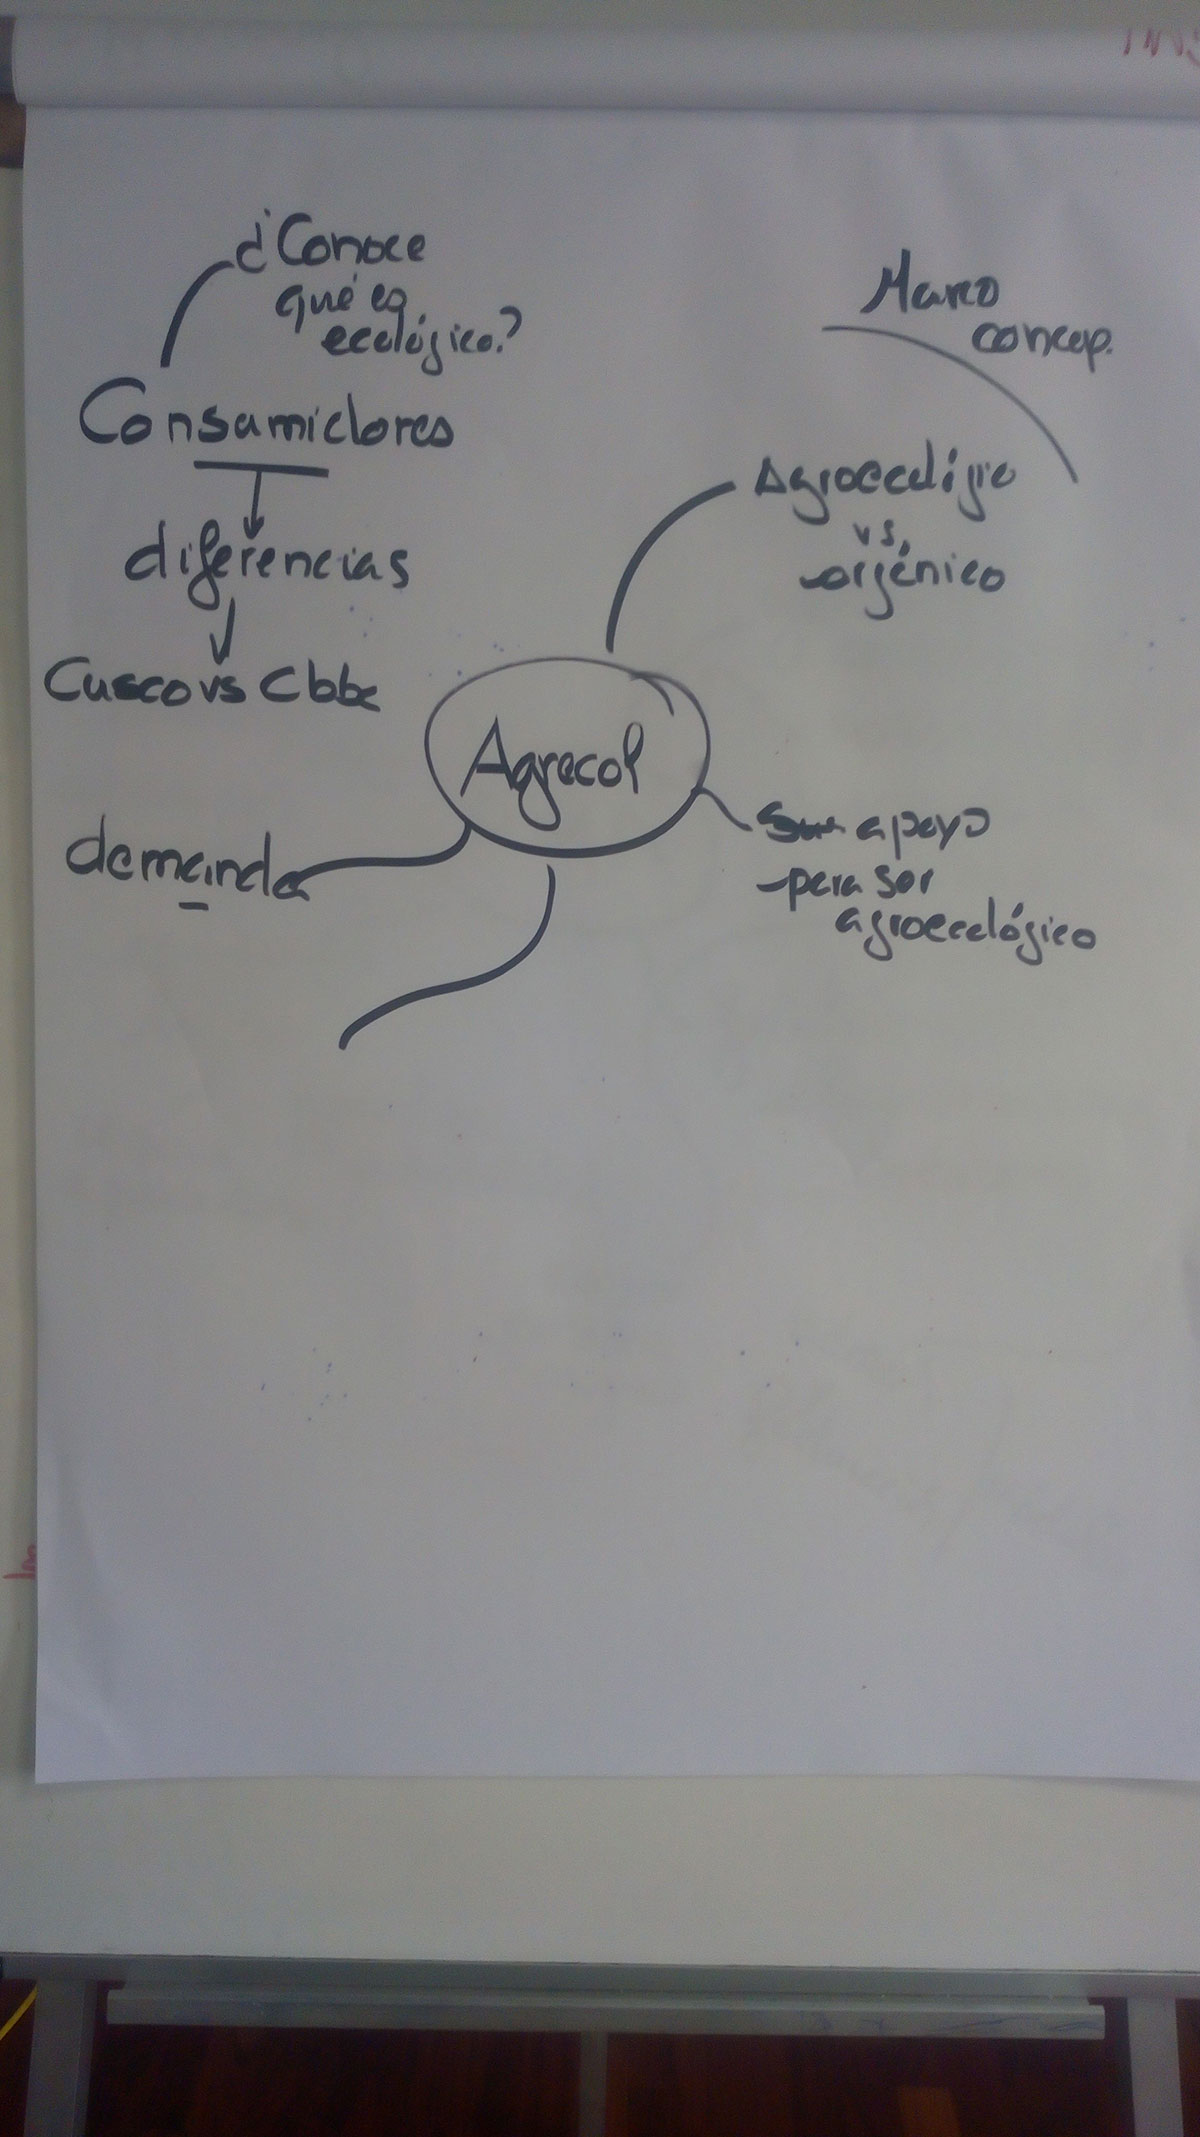 ¿Conoce
qué es
ecológico?
Consumidores
diferencias
Cusco vs Cbba
Marco
concep.
Agroecológico
vs.
orgánico
Agrecol
demanda
apoyo
para ser
agroecológico